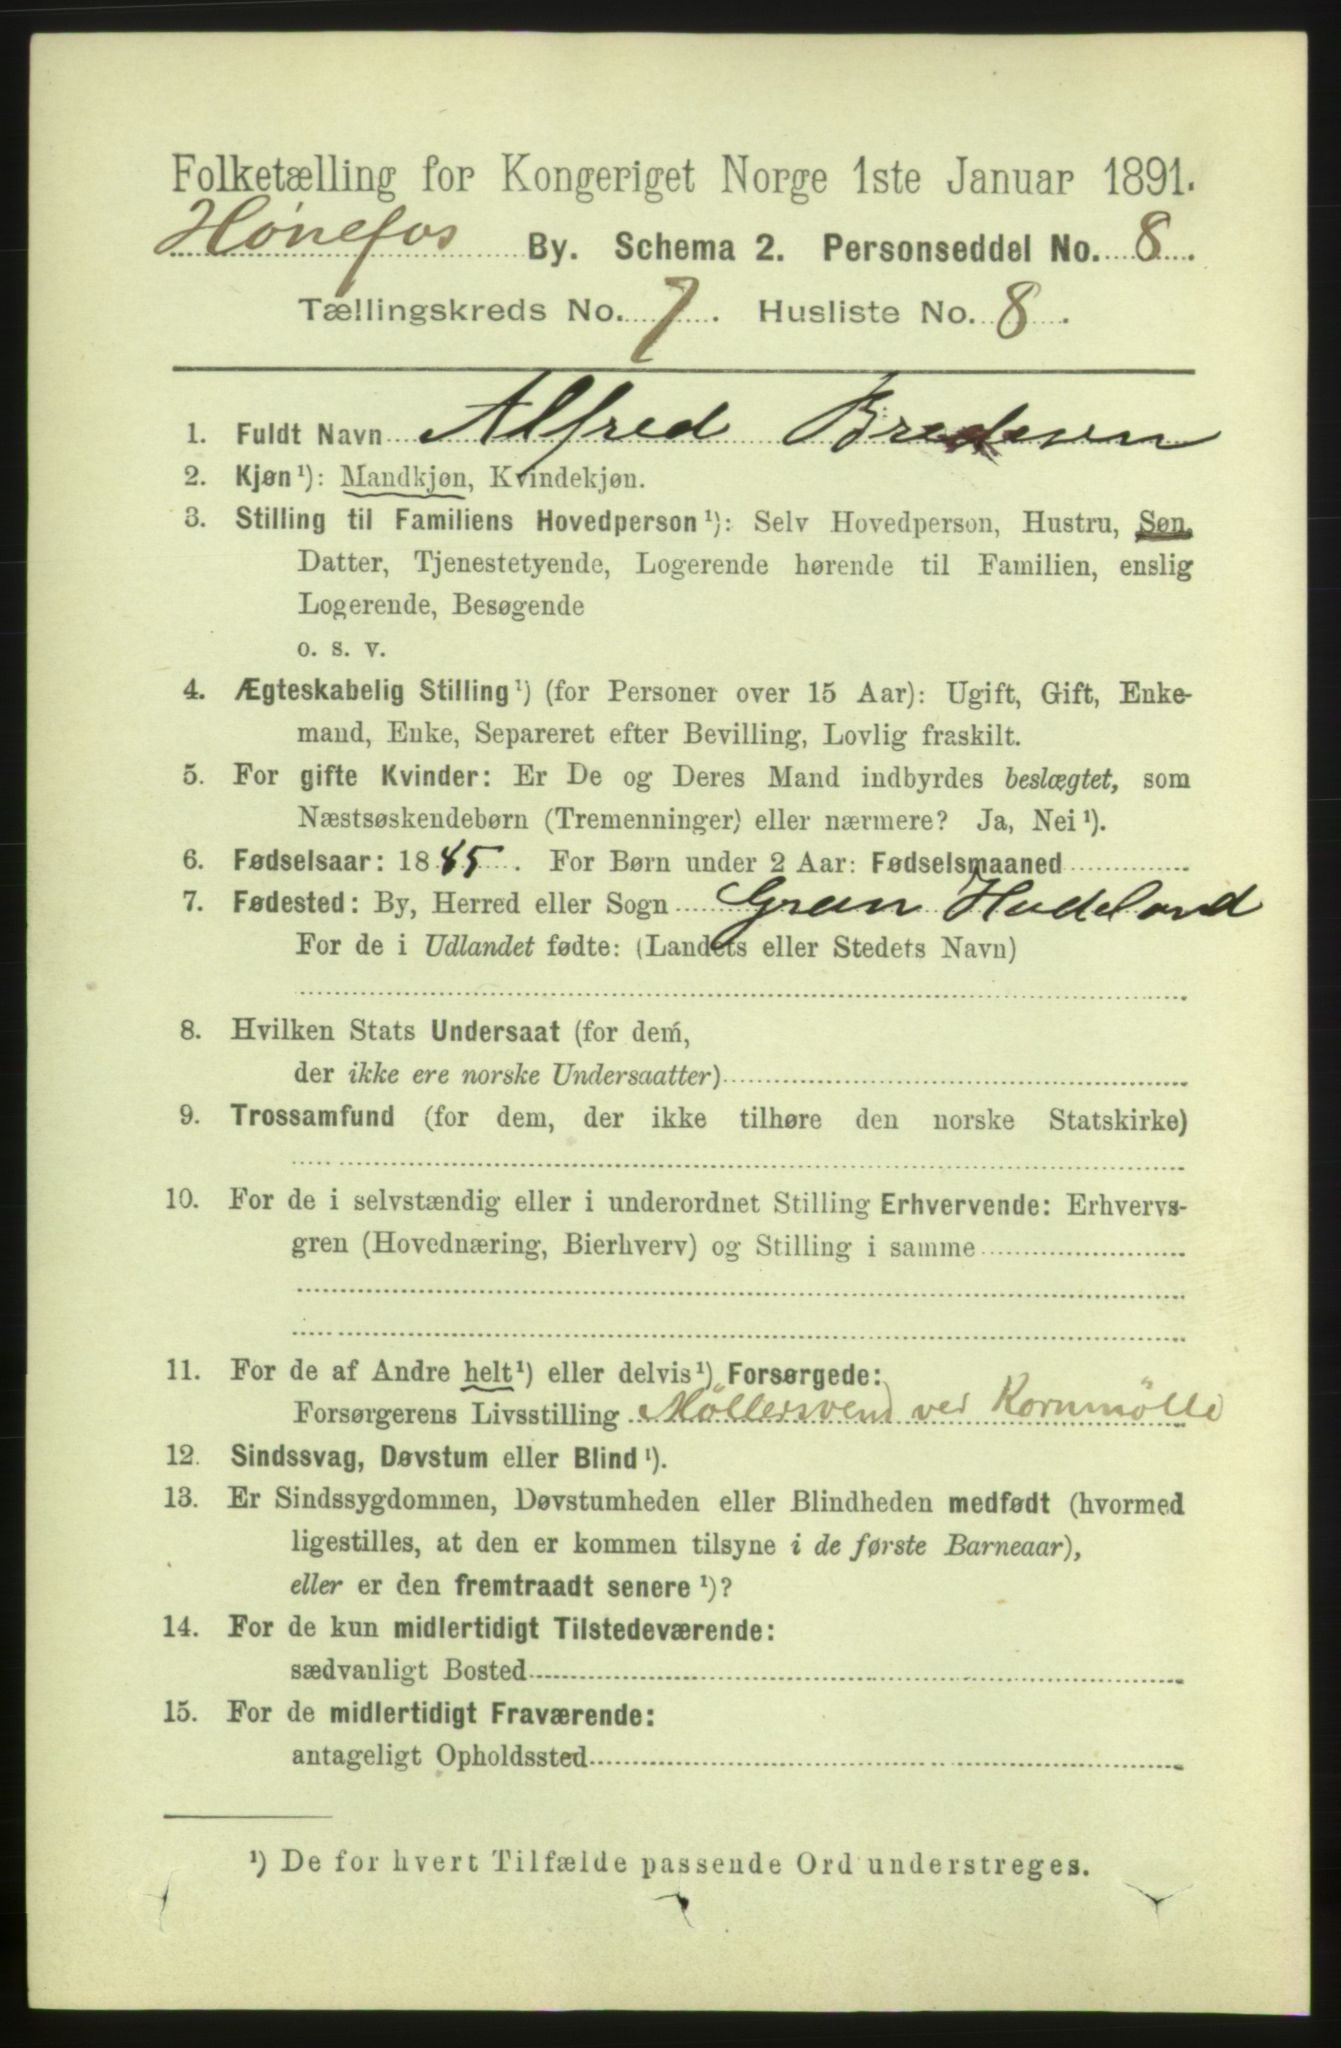 Folketælling for Kongeriget Norge 1ste Januar 1891.
Hønefos By. Schema 2. Personseddel No. 8.
Tællingskreds No. 7. Husliste No. 8.
1. Fuldt Navn Alfred
2. Kjøn¹): Mandkjøn, Kvindekjøn.
3. Stilling til Familiens Hovedperson¹): Selv Hovedperson, Hustru, Søn,
Datter, Tjenestetyende, Logerende hørende til Familien, enslig
Logerende, Besøgende
o. s. v.
4. Ægteskabelig Stilling¹) (for Personer over 15 Aar): Ugift, Gift, Enke-
mand, Enke, Separeret efter Bevilling, Lovlig fraskilt.
5. For gifte Kvinder: Er De og Deres Mand indbyrdes beslægtet, som
Næstsøskendebørn (Tremenninger) eller nærmere? Ja, Nei¹).
6. Fødselsaar: 1885. For Børn under 2 Aar: Fødselsmaaned
7. Fødested: By, Herred eller Sogn Gran Hadeland
For de i Udlandet fødte: (Landets eller Stedets Navn)
8. Hvilken Stats Undersaat (for dem,
der ikke ere norske Undersaatter)
9. Trossamfund (for dem, der ikke tilhøre den norske Statskirke)
10. For de i selvstændig eller i underordnet Stilling Erhvervende: Erhvervs-
gren (Hovednæring, Bierhverv) og Stilling i samme
11. For de af Andre helt¹) eller delvis¹) Forsørgede:
Forsørgerens Livsstilling Møllersvend ved Kornmølle
12. Sindssvag, Døvstum eller Blind¹).
13. Er Sindssygdommen, Døvstumheden eller Blindheden medfødt (hvormed
ligestilles, at den er kommen tilsyne i de første Barneaar),
eller er den fremtraadt senere¹)?
14. For de kun midlertidigt Tilstedeværende:
sædvanligt Bosted
15. For de midlertidigt Fraværende:
antageligt Opholdssted
¹) De for hvert Tilfælde passende Ord understreges.